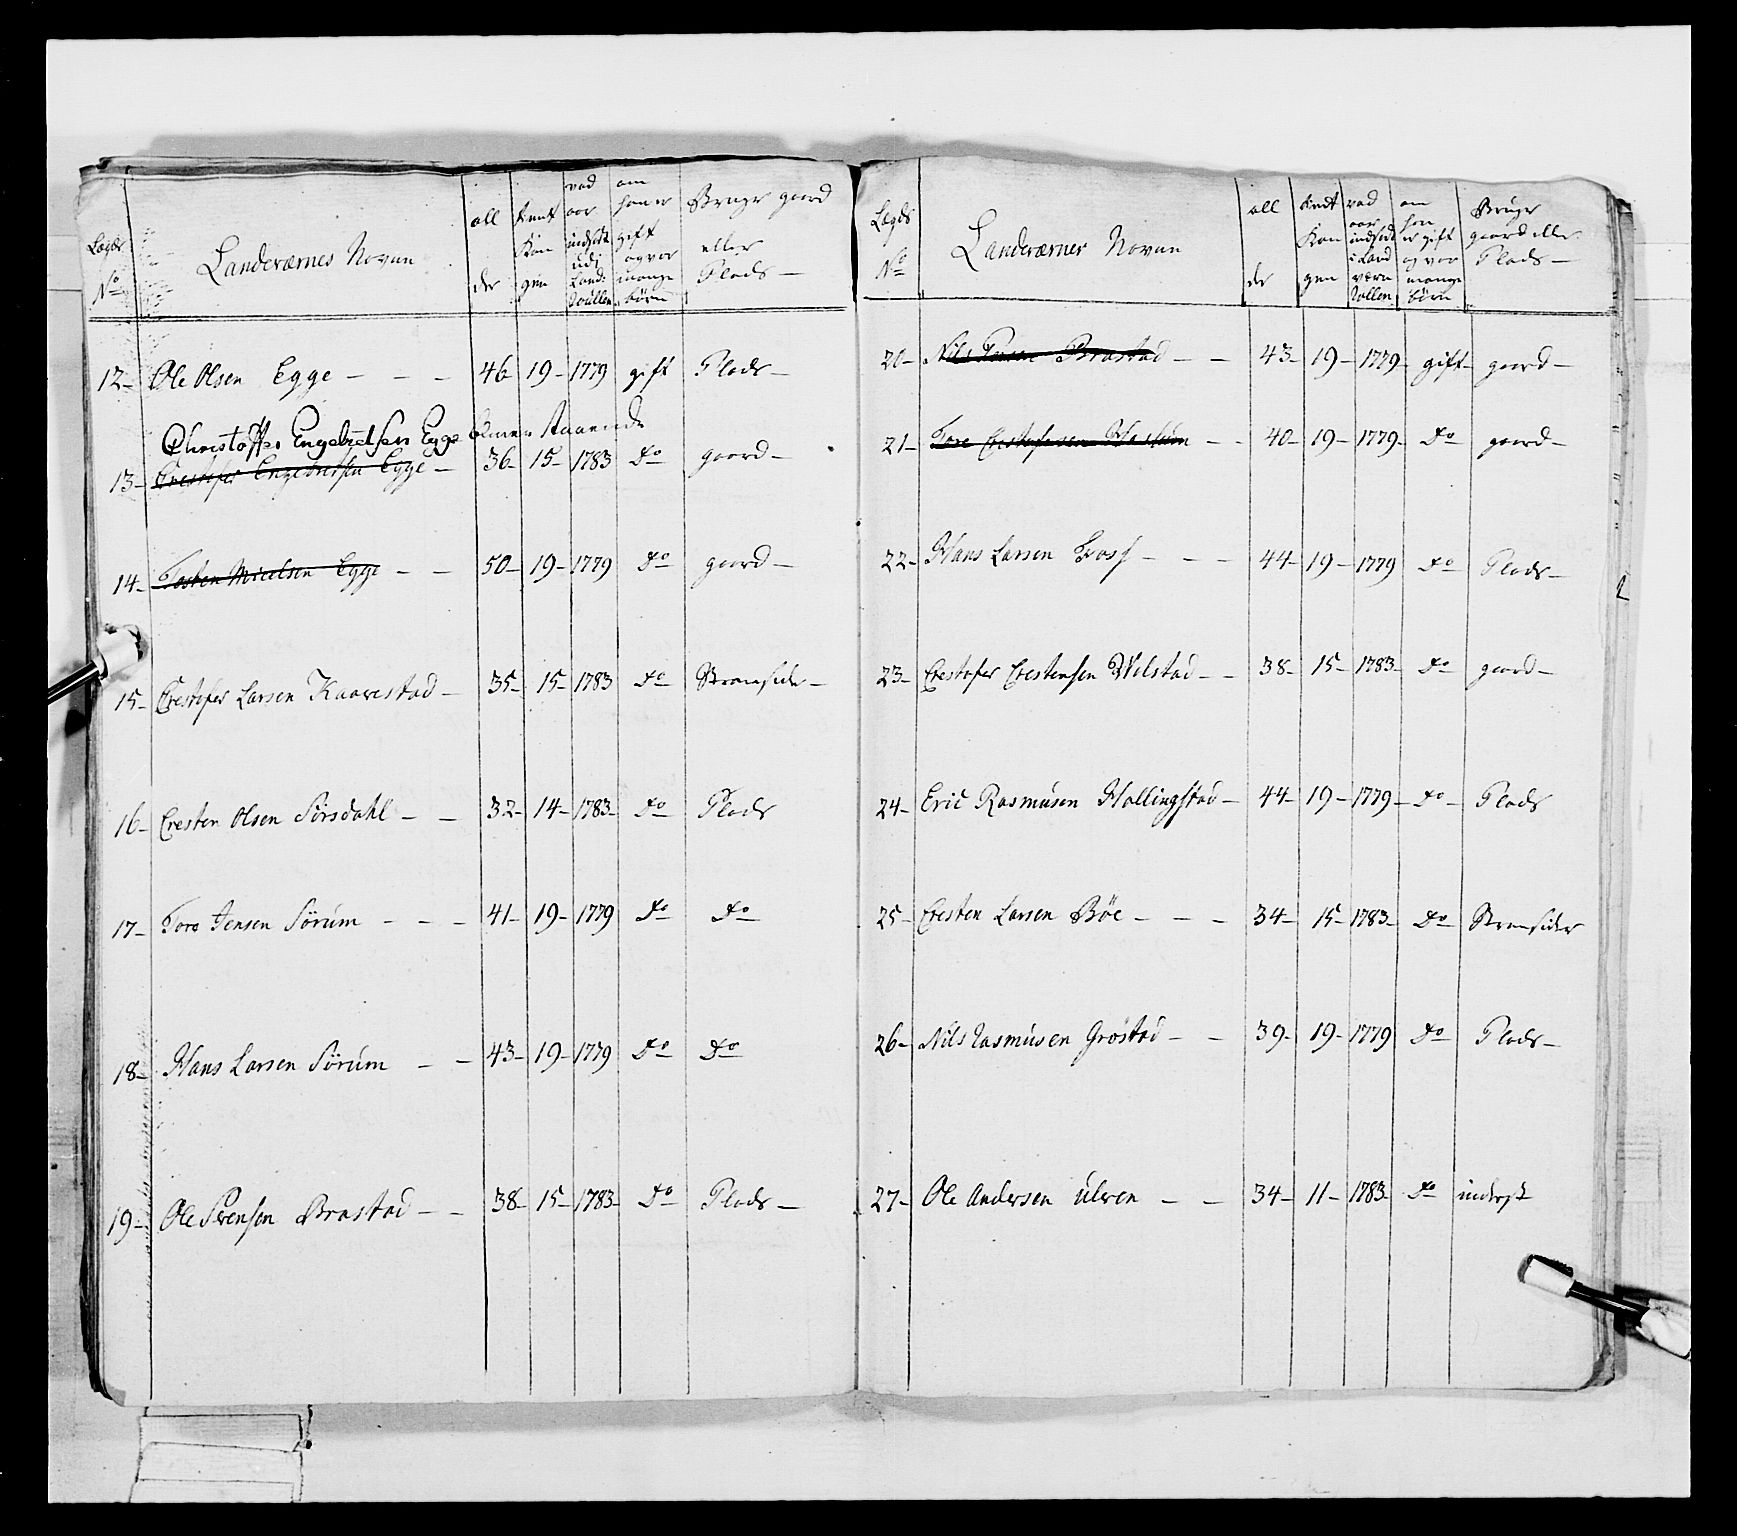 Lægds N° | Landeværnes Navne | all der | tient Kongen | vad aar indsedt udj Land: Rullen | om han er gift og vor mange børn | Bruger gaard eller Plads —
12 — Ole Olsen Egge — — — 46 — 19 — 1779 gift Plads —
Christoffer Engebretsen Egge
13 — Crestofer Engebretsen Egge — 36 — 15 — 1783 Do gaard —
14 — Tosten Micelsen Egge — — 50 — 19 — 1779 Do gaard —
15 — Crestofer Larsen Kaarestad — 35 — 15 — 1783 Do Strandsider —
16 — Cresten Olsen Sørsdahl — — 32 — 14 — 1783 — Do Plads
17 — Tore Jensen Sørum — — — 41 — 19 — 1779 Do Do
18 — Hans Larsen Sørum — — 43 — 19 — 1779 Do Do
19 — Ole Svensen Brastad — — 38 — 15 — 1783 — Do Plads —
Lægds N° | Landeværnes Navne | all der | tient Kongen | vad aar indsedt i Land værn Rollen | om han er gift og vor mange børn | Bruger gaard eller Plads —
20 — Nils Brastad — — 43 — 19 — 1779 — gift — gaard —
21 — Tore Crestofersen — — 40 — 19 — 1779 — Do gaard —
22 — Hans Larsen Foss — — — 44 — 19 — 1779 Do Plads —
23 — Crestofer Crestensen Vilstad — — 38 — 15 — 1783 — Do gaard —
24 — Eric Rasmusen Hallingstad — 44 — 19 — 1779 — Do — Plads
25 — Cresten Larsen Bøe — — — 34 — 15 — 1783 — Do Strandsider
26 — Nils Rasmusen Grøstad — — 39 — 19 — 1779 Do Plads —
27 — Ole Andersen Ulven — — 34 — 11 — 1783 — Do inderst